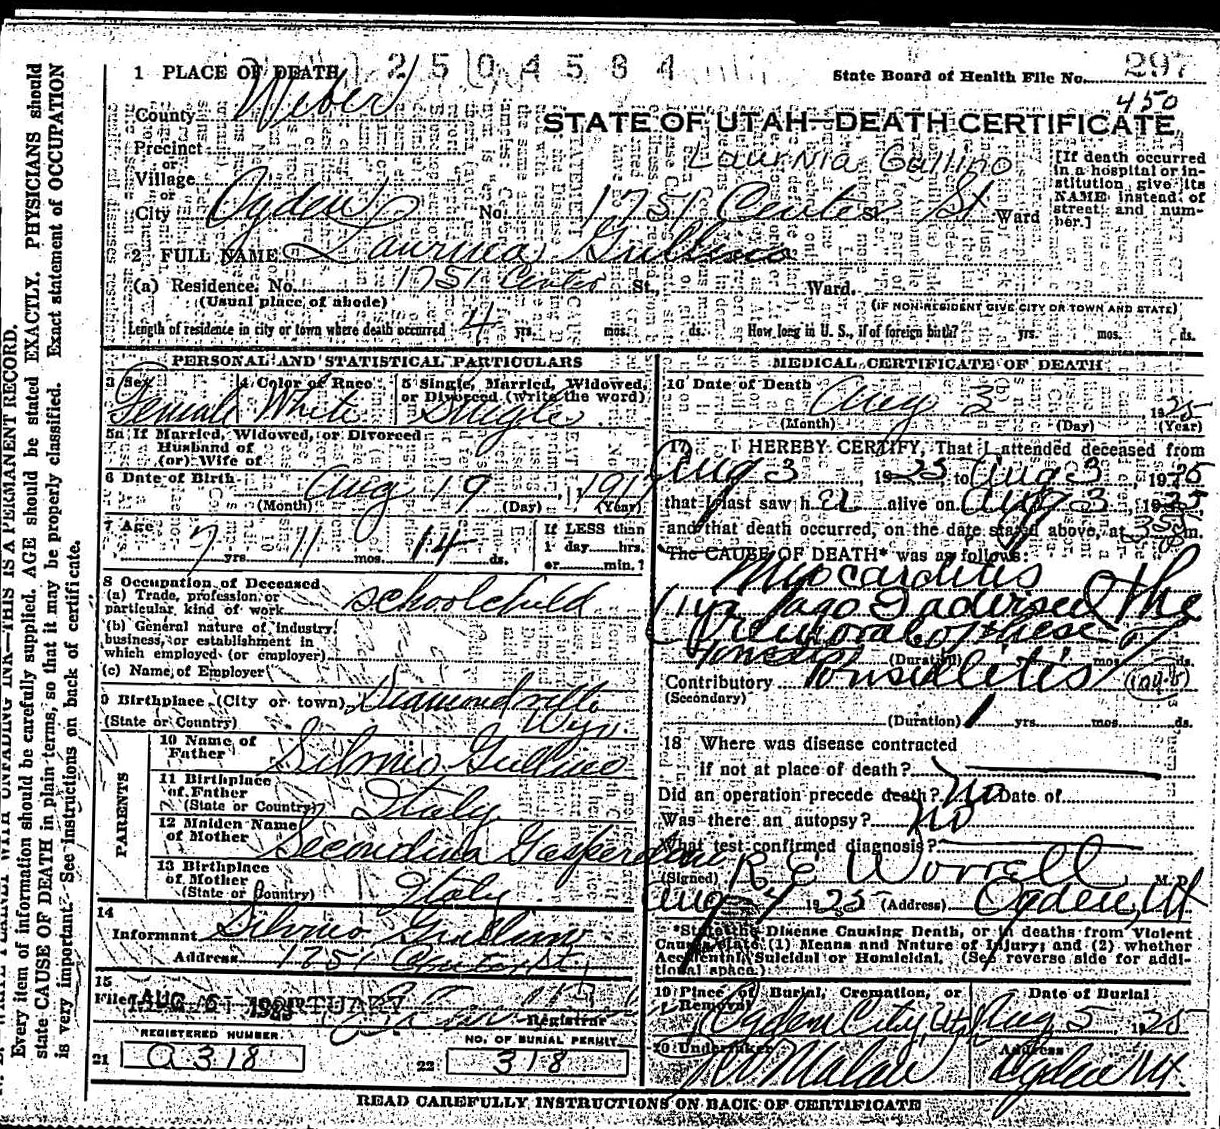 1 PLACE OF DEATH 2504584 State Board of Health File No. 297
County Weber 450
STATE OF UTAH—DEATH CERTIFICATE
Precinct
or
Village
Laurnia Gullino
[If death occurred in a hospital or institution give its NAME instead of street and number.]
or
City Ogden No. 1751 Center St. St Ward
2 FULL NAME Laurnia Gullino
(a) Residence. No. 1751 Center St., Ward.
(Usual place of abode) (IF NON-RESIDENT GIVE CITY OR TOWN AND STATE)
Length of residence in city or town where death occurred 4 yrs. mos. ds. How long in U. S., if of foreign birth? yrs. mos. ds.
PERSONAL AND STATISTICAL PARTICULARS
3 Sex Female
4 Color or Race White
5 Single, Married, Widowed, or Divorced (write the word) Single
5a If Married, Widowed, or Divorced
Husband of
(or) Wife of
6 Date of Birth Aug 19, 1917
(Month) (Day) (Year)
7 Age 7 yrs 11 mos. 14 ds.
If LESS than
1 day hrs.
or min.?
8 Occupation of Deceased
(a) Trade, profession or
particular, kind of work schoolchild
(b) General nature of industry,
business, or establishment in
which employed (or employer)
(c) Name of Employer
9 Birthplace (City or town) Diamondville
(State or Country) Wyo.
PARENTS
10 Name of
Father Silvio Gullino
11 Birthplace
of Father
(State or Country) Italy
12 Maiden Name
of Mother Secondina
13 Birthplace
of Mother
(State or Country) Italy
14
Informant Silvio Gullino
Address 1751 Center St.
15
Filed AUG 1925
Registrar
REGISTERED NUMBER. NO. OF BURIAL PERMIT
21 a318 22 318
MEDICAL CERTIFICATE OF DEATH
16 Date of Death Aug 3 1925
(Month) (Day) (Year)
17 I HEREBY CERTIFY, That I attended deceased from
Aug 3 1925 to Aug 3 1925
that I last saw her alive on Aug 3, 1925
and that death occurred, on the date stated above, at m.
The CAUSE OF DEATH* was as follows:
Myocarditis
I advised the
removal of these
(Duration) mos. ds.
Contributory Tonsillitis
(Secondary)
(Duration) 1 yrs. mos. ds.
18 Where was disease contracted
if not at place of death?
Did an operation precede death? No Date of
Was there an autopsy? No
What test confirmed diagnosis?
(Signed) R E Worrell M. D.
Aug 4 1925 (Address) Ogden, Ut
*State the Disease Causing Death, or in deaths from Violent
Causes, state (1) Means and Nature of Injury; and (2) whether
Accidental, Suicidal or Homicidal. (See reverse side for additional space.)
19 Place of Burial, Cremation, or Removal Ogden City, Ut
Date of Burial Aug 5, 1925
20 Undertaker Malan
Address Ogden Ut.
READ CAREFULLY INSTRUCTIONS ON BACK OF CERTIFICATE
WRITE PLAINLY WITH UNFADING INK—THIS IS A PERMANENT RECORD.
Every item of information should be carefully supplied. AGE should be stated EXACTLY. PHYSICIANS should
state CAUSE OF DEATH in plain terms, so that it may be properly classified. Exact statement of OCCUPATION
is very important. See instructions on back of certificate.